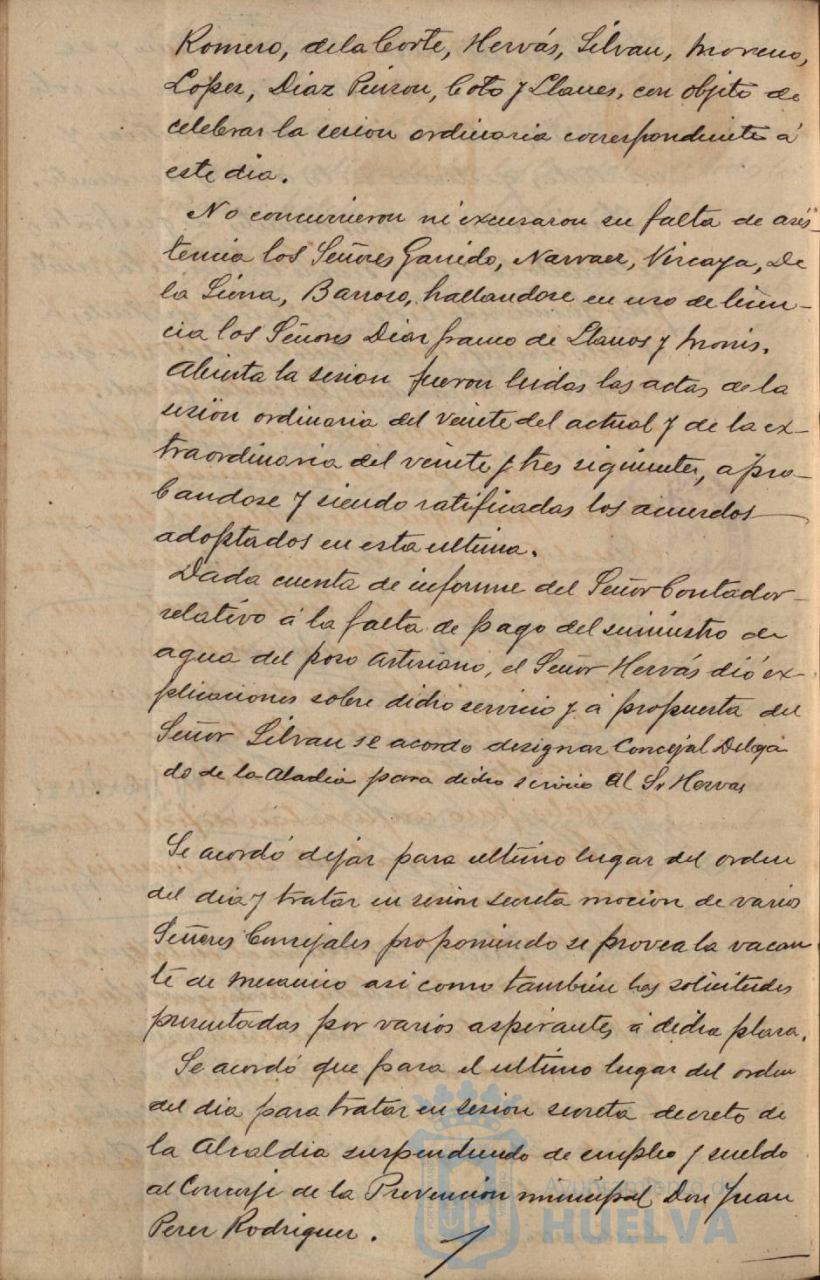 Romero, de la Corte, Hervás, Silvan, Moreno,
Lopez, Diaz Pinzon, Coto y Llanes, con objeto de
celebrar la sesion ordinaria correspondiente á
este dia.
No concurrieron ni excusaron su falta de asis-
tencia los Señores Garrido, Narvaez, Vizcaya, De
la Sierra, Barroso, hallandose en uso de licen-
cia los Señores Diaz franco de Llanos y Monis.
Abierta la sesion fueron leidas las actas de la
sesion ordinaria del veinte del actual y de la ex-
traordinaria del veinte y tres siguientes, apro-
bandose y siendo ratificadas los acuerdos
adoptados en esta ultima.
Dada cuenta de informe del Señor Contador
relativo á la falta de pago del suministro de
agua del pozo Artesiano, el Señor Hervás dió ex-
plicaciones sobre dicho servicio y á propuesta del
Señor Silvan se acordo designar Concejal Delega
do de la Alcaldia para dicho servicio al Sr Hervas
Se acordó dejar para ultimo lugar del orden
del dia y tratar en sesion secreta mocion de varios
Señores Concejales proponiendo se provea la vacan
te de mecanico asi como también las solicitudes
presentadas por varios aspirantes á dicha plaza.
Se acordó que para el ultimo lugar del orden
del dia para tratar en sesion secreta decreto de
la Alcaldia suspendiendo de empleo y sueldo
al Conserje de la Prevención municipal Don Juan
Perez Rodriguez.
Ayuntamiento de
HUELVA